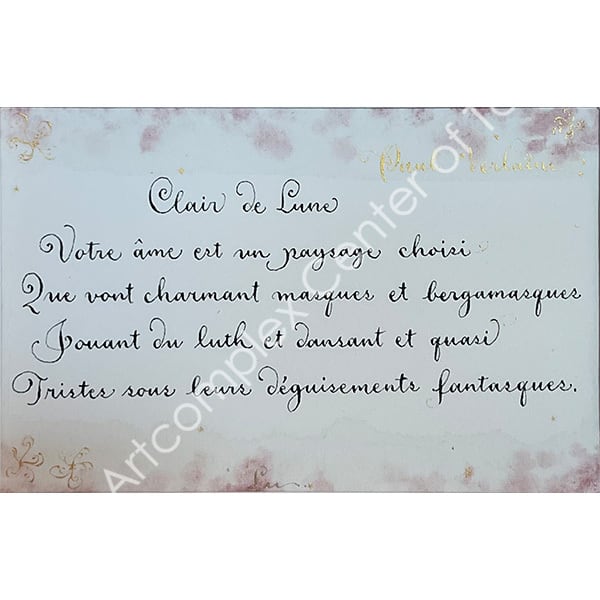 Paul Verlaine
Clair de Lune
Votre âme est un paysage choisi
Que vont charmant masques et bergamasques
Jouant du luth et dansant et quasi
Tristes sous leurs déguisements fantasques.
Artcomplex Center of To